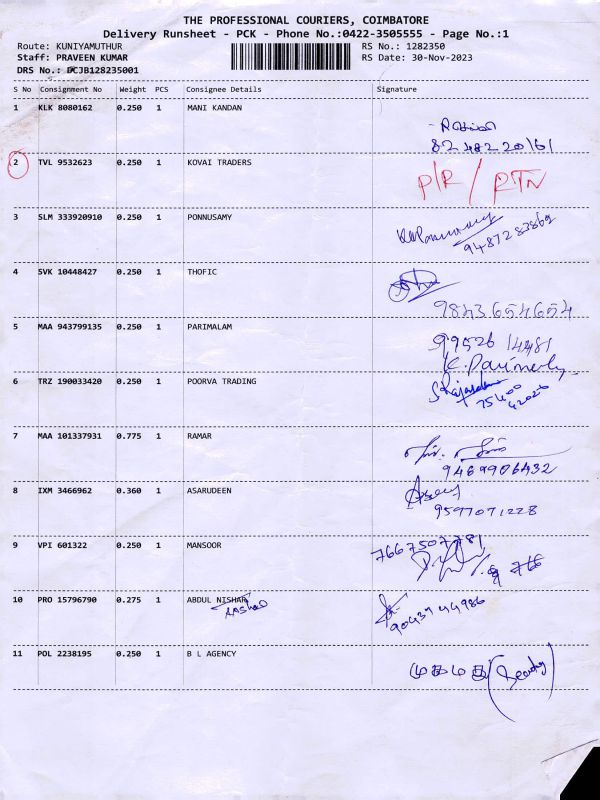 THE PROFESSIONAL COURIERS, COIMBATORE
Delivery Runsheet - PCK - Phone No.:0422-3505555 - Page No.:1
Route: KUNIYAMUTHUR RS No.: 1282350
Staff: PRAVEEN KUMAR RS Date: 30-Nov-2023
DRS No.: DCJB128235001
S No Consignment No Weight PCS Consignee Details Signature
1 KLK 8080162 0.250 1 MANI KANDAN
82 482 20161
2 TVL 9532623 0.250 1 KOVAI TRADERS
P/R / RTN
3 SLM 333920910 0.250 1 PONNUSAMY
9487283869
4 SVK 10448427 0.250 1 THOFIC
9843654654
5 MAA 943799135 0.250 1 PARIMALAM
99526 14481
K. Parimerly
6 TRZ 190033420 0.250 1 POORVA TRADING
75400
42026
7 MAA 101337931 0.775 1 RAMAR
9469906432
8 IXM 3466962 0.360 1 ASARUDEEN
9597071228
9 VPI 601322 0.250 1 MANSOOR
7667507781
10 PRO 15796790 0.275 1 ABDUL NISHAR
9043944986
11 POL 2238195 0.250 1 B L AGENCY